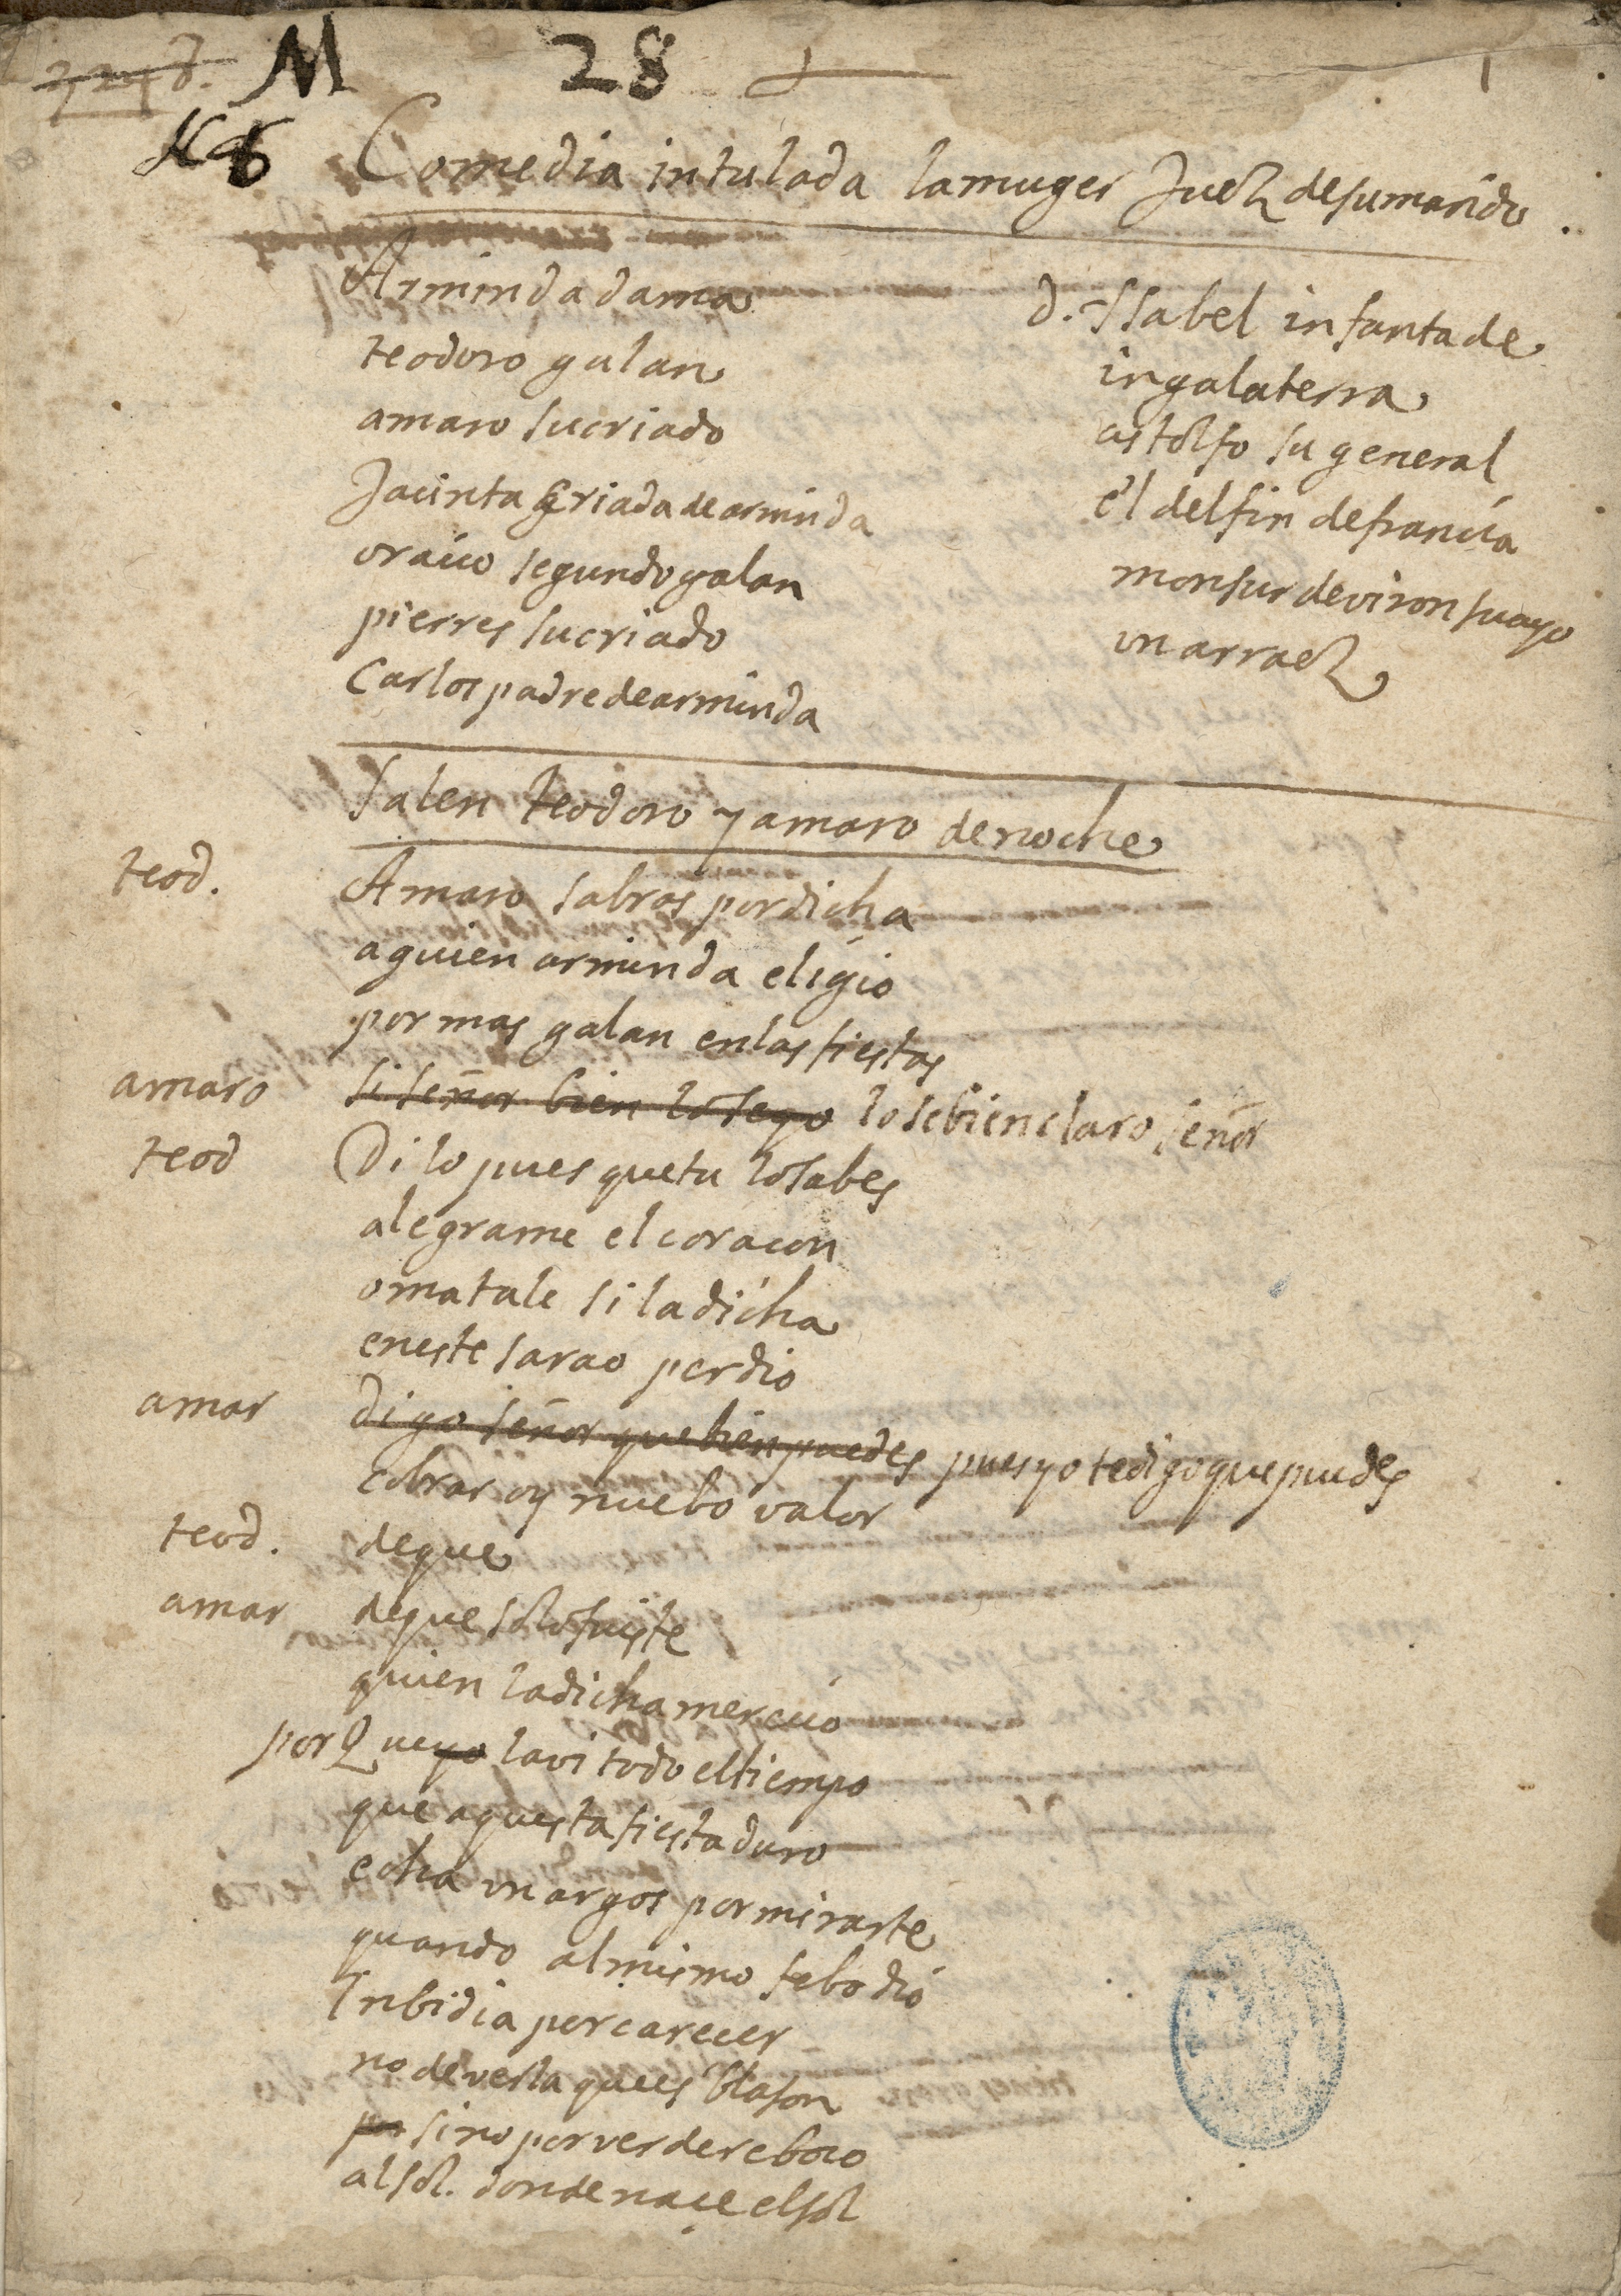 M 28
N 6
Comedia intulada lamuger Juez desumarido
Arminda dama
teodoro galan
amaro sucriado
Jacinta criada de arminda
oracio segundo galan
pierres sucriado
Carlos padre de arminda
d. Ysabel infanta de
ingalaterra
astolfo su general
el delfin de francia
monsur de viron suayo
un arraez
Salen teodoro y amaro de noche
teod. Amaro sabras por dicha
a quien arminda eligio
por mas galan en las fiestas
amaro si señor bien lo se yo lo se bien claro señor
teod Di lo pues que tu lo sabes
alegrame el coracon
o matale si la dicha
en este sarao perdio
amar digo señor que bien puedes pues yo te digo que puedes
cobrar oy nuebo valor
teod. de que
amar de que solo fuiste
quien la dicha mercio
por Que yo la vi todo el tiempo
que aquesta fiesta duro
echa un argos por mirarte
quando al mismo febo dio
Inbidia por carecer
no de vesta que es blason
por sino por ver de reboco
al sol. donde naçe el sol